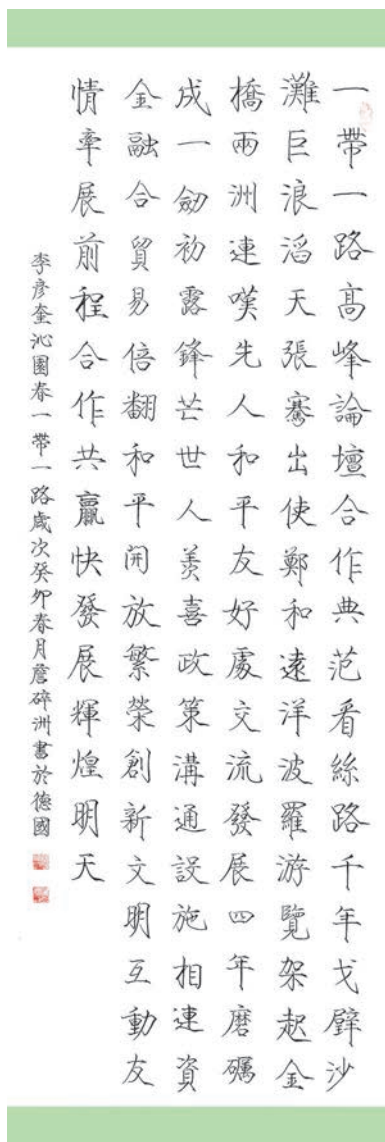 一帶一路高峰論壇合作典范看絲路千年戈壁沙
灘巨浪滔天張騫出使鄭和遠洋波羅游覽架起金
橋兩洲連嘆先人和平友好處交流發展四年磨礪
成一劒初露鋒芒世人羡喜政策溝通設施相連資
金融合貿易倍翻和平開放繁榮創新文明互動友
情牽展前程合作共贏快發展輝煌明天
李彦奎沁園春一帶一路歲次癸卯春月詹碎洲書於德國